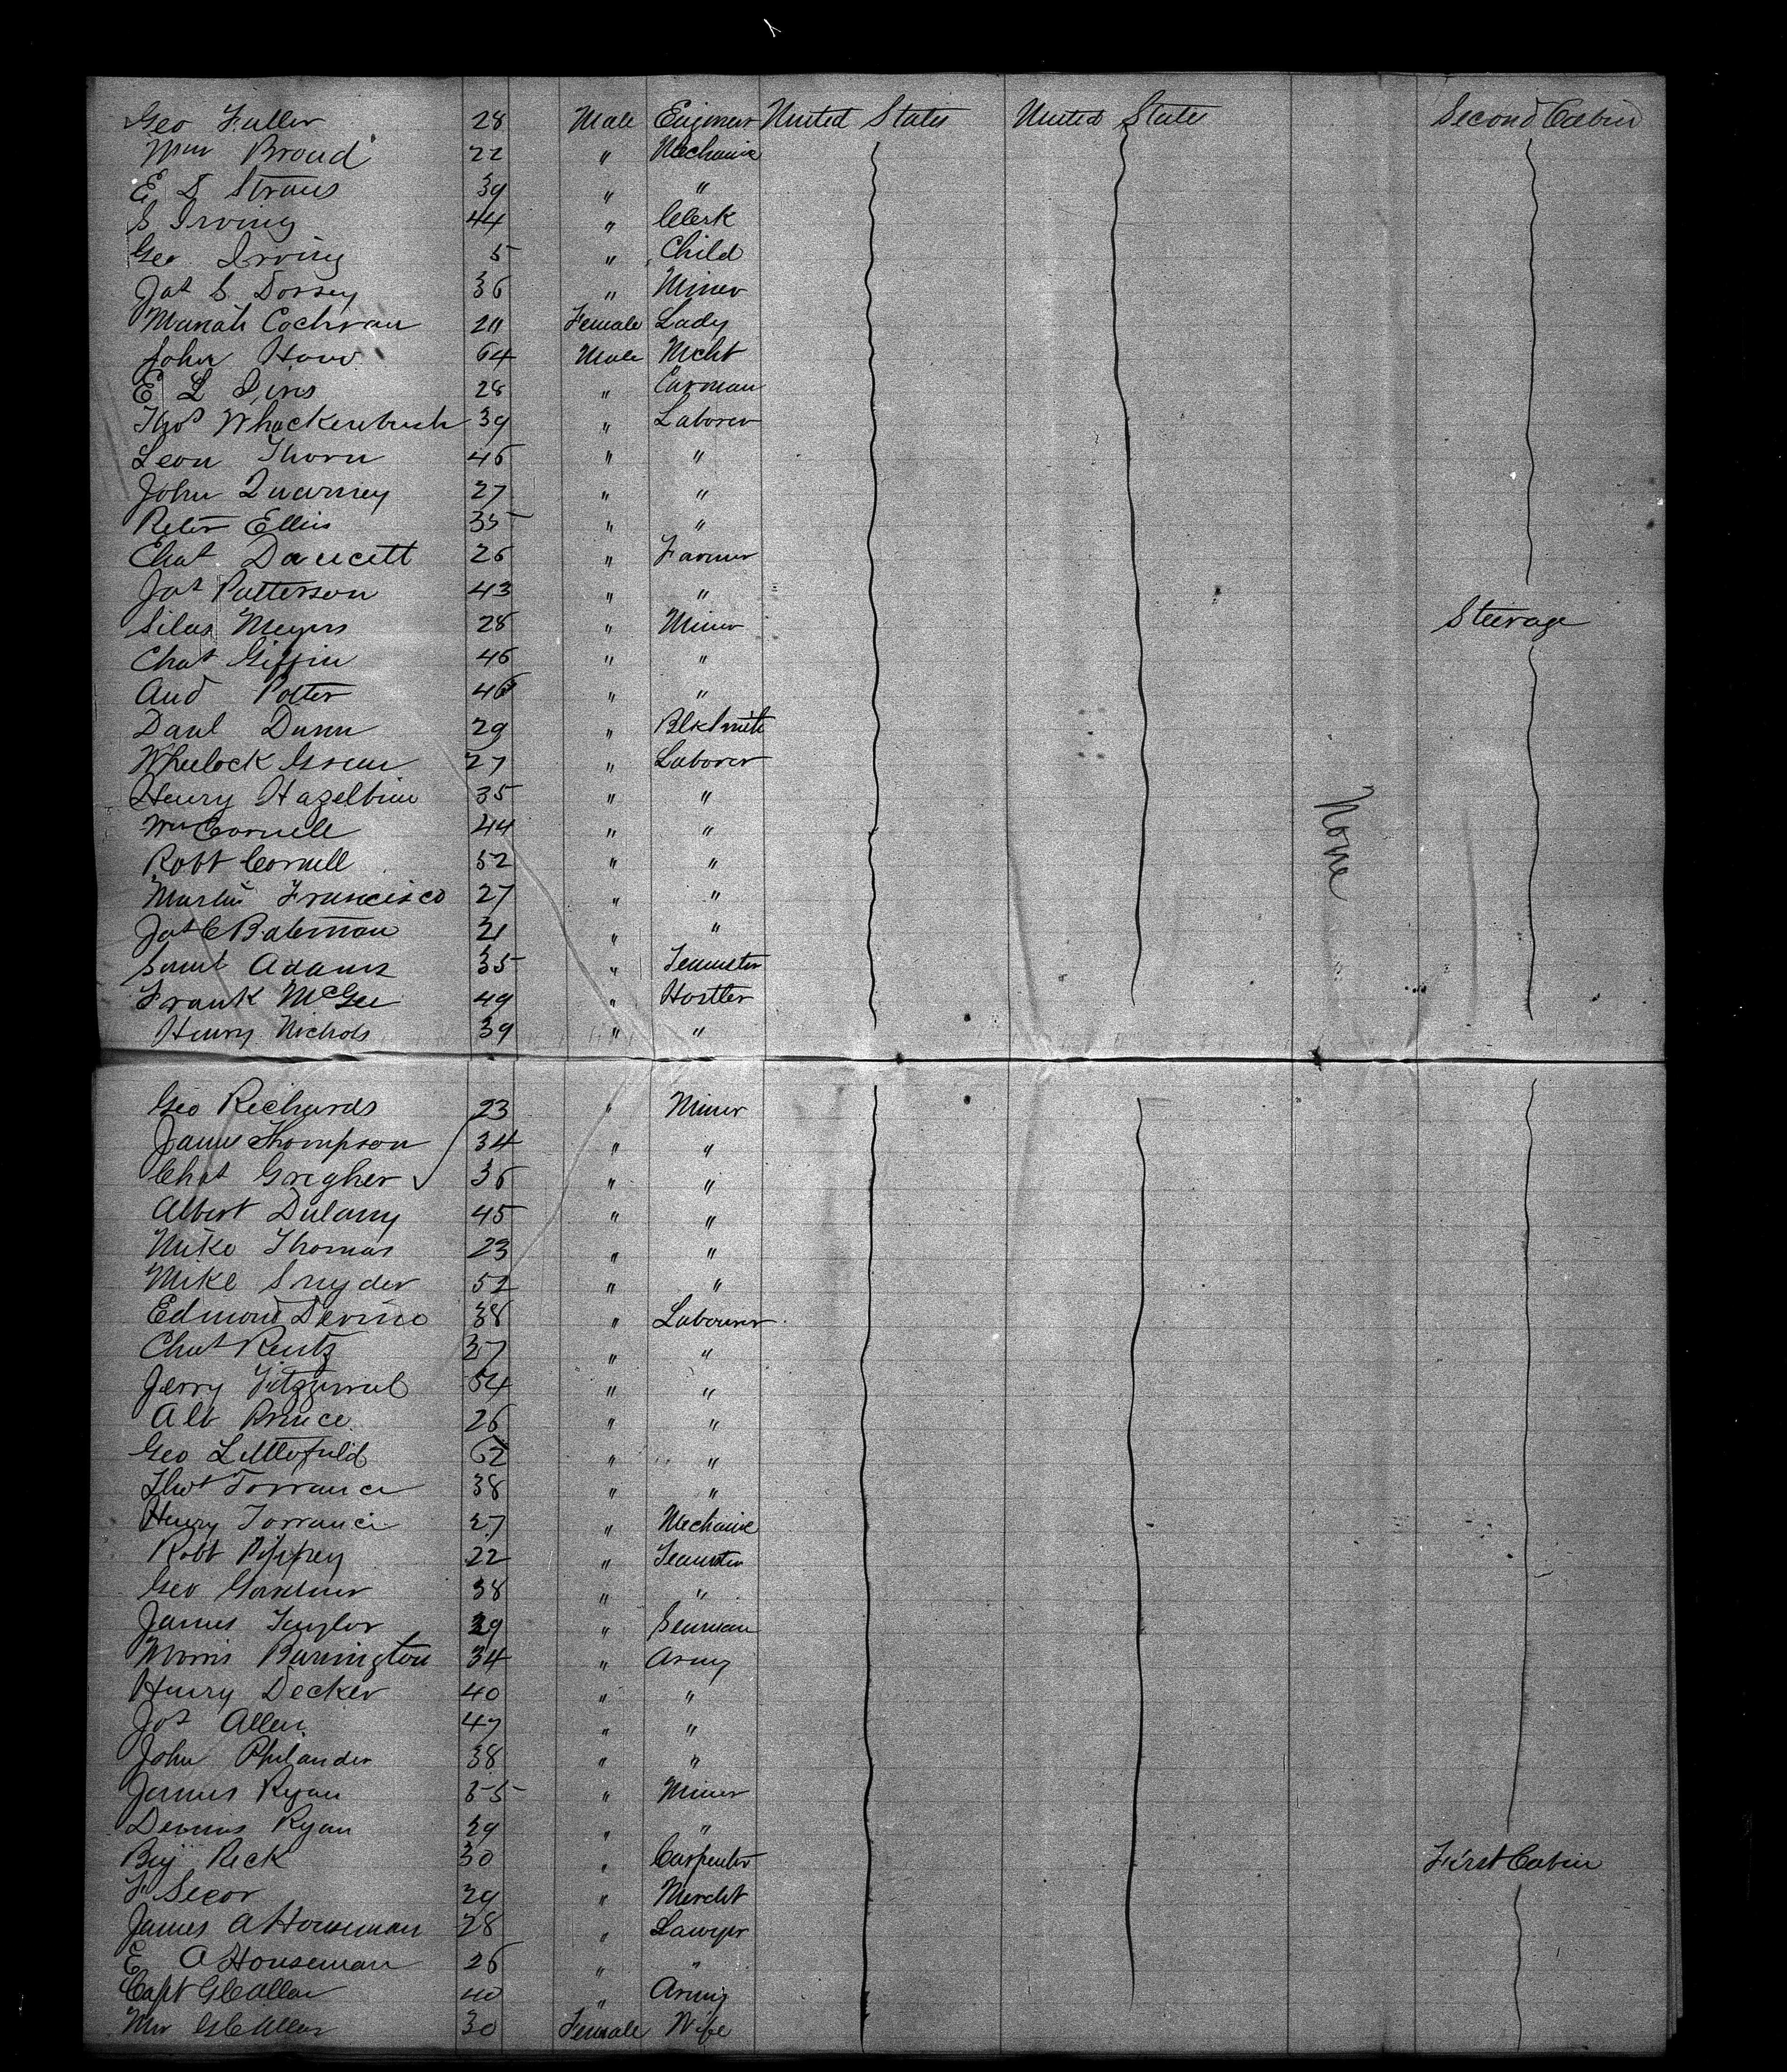 Geo Fuller 28 Male Engineer United States United States Second Cabin
Wm Broad 22 " Mechanic
E D Straus 39 " "
S Irving 44 " Clerk
Geo Irving 5 " Child
Jas S Dorsey 36 " Miner
Mariah Cochran 20 Female Lady
John How 64 Male Mcht
E L 28 " Carman
Thos Whackenbush 39 " Laborer
Leon Thorn 46 " "
John Quarney 27 " "
Peter Ellis 35 " "
Chas Daucett 26 " Farmer
Jas Patterson 43 " "
Silas Meyers 28 " Miner Steerage
Chas Giffin 46 " "
And Potter 46 " "
Danl Dunn 29 " BlkSmith
Wheelock Green 27 " Laborer
Henry Hazelbine 35 " "
None
Wm Cornell 44 " "
Robt Cornell 52 " "
Martin Francisco 27 " "
Jas C Bateman 21 " "
Saml Adams 35 " Teamster
Frank McGee 49 " Hostler
Henry Nichols 39 " "
Geo Richards 23 " Miner
James Thompson 34 " "
Chas Gregher 36 " "
Albert Dulany 45 " "
Mike Thomas 23 " "
Mike Snyder 52 " "
Edmond Devine 38 " Labourer
Chas Rentz 37 " "
Jerry Fitzgerral 54 " "
Alb Prince 26 " "
Geo Littlefield 62 " "
Thos Torrance 38 " "
Henry Torrance 27 " Mechanic
Robt Pippey 22 " Teamster
Geo Gardner 38 " "
James Taylor 29 " Seaman
Morris Barrington 34 " Army
Henry Decker 40 " "
Jos Allen 47 " "
John Philander 38 " "
James Ryan 35 " Miner
Dennis Ryan 29 " "
Benj Peck 30 " Carpenter First Cabin
F Secor 29 " Mercht
James A Houseman 28 " Lawyer
E A Houseman 26 " "
Capt G C Allen 40 " Army
Mrs G C Allen 30 Female Wife